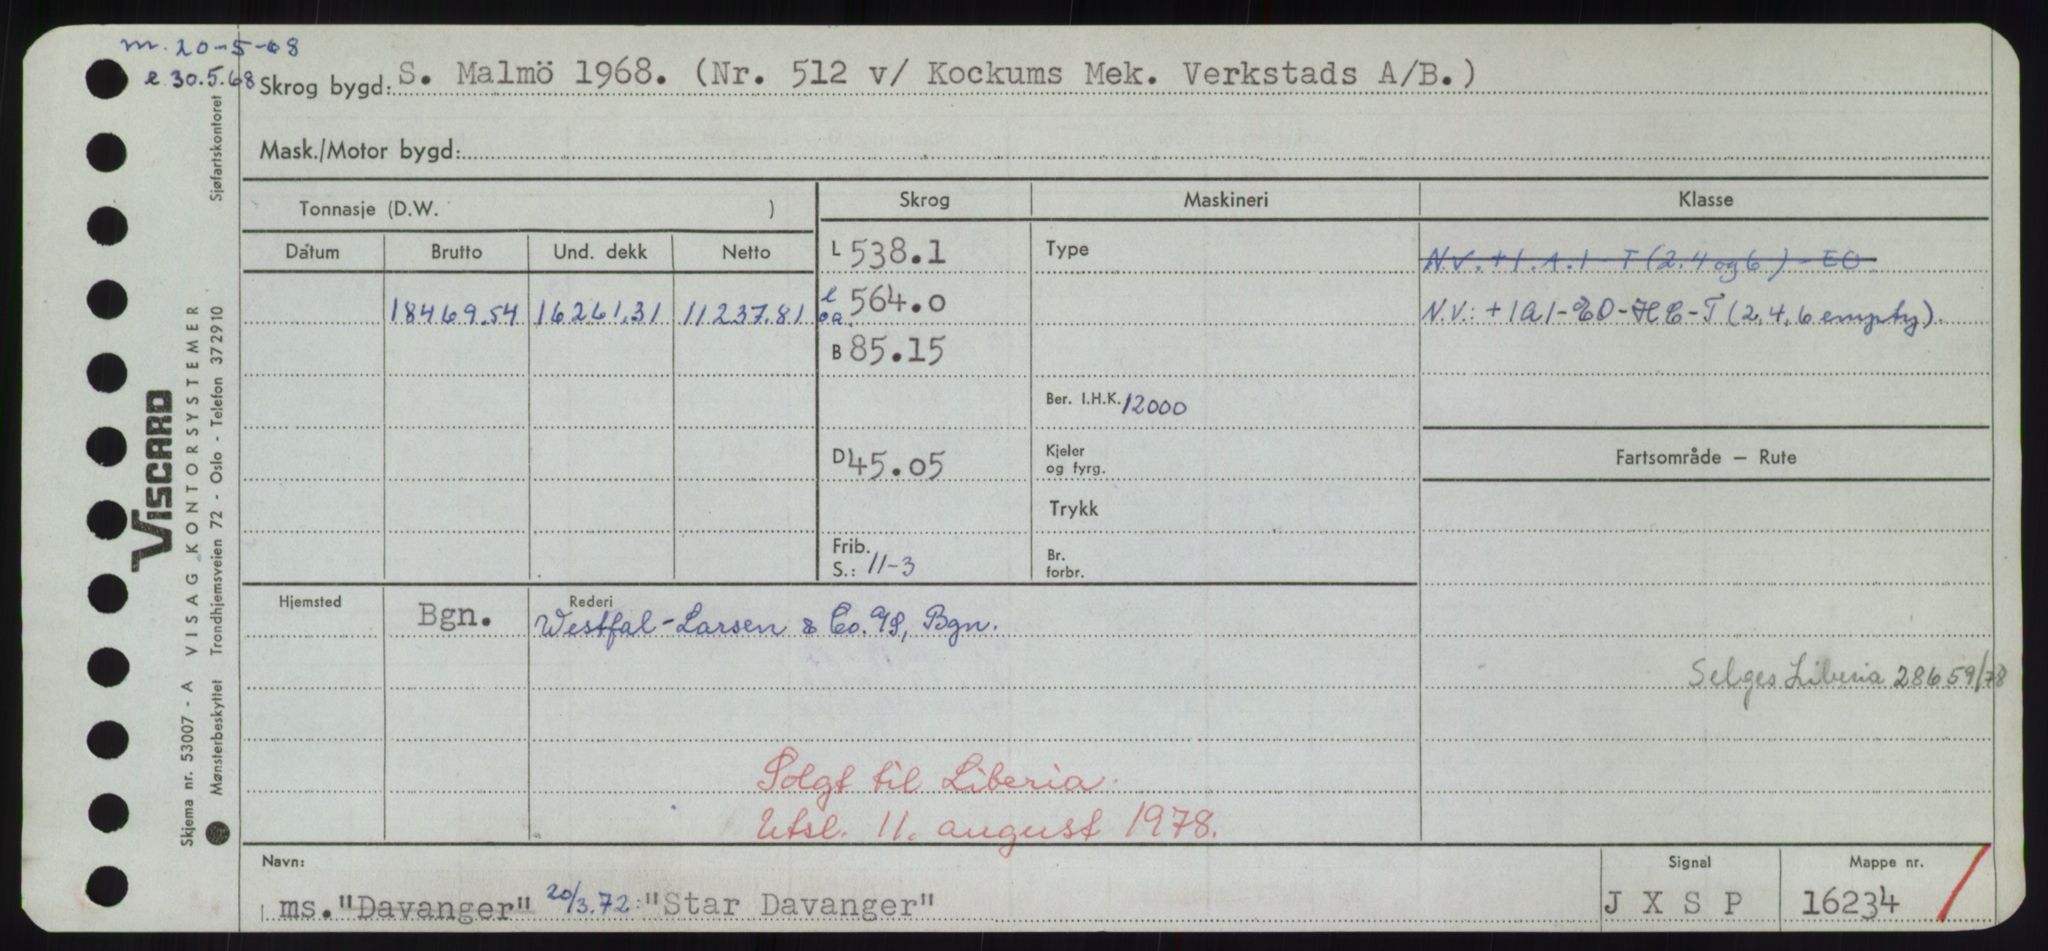 m. 20-5-68
e 30.5.68
Skrog bygd: S. Malmö 1968. (Nr. 512 v/ Kockums Mek. Verkstads A/B.)
Mask./Motor bygd:
Tonnasje (D.W. )
Skrog Maskineri Klasse
Datum Brutto Und. dekk Netto
18469.54 16261.31 11237.81
L 538.1
l oa. 564.0
B 85.15
D 45.05
Frib. S.: 11-3
Type
Ber. I.H.K. 12000
Kjeler og fyrg.
Trykk
Br. forbr.
N.V. +1.A.1 - T (2.4 og 6.) - EO
N.V.: +1A1-EO-HC-T (2,4,6 empty).
Fartsområde – Rute
Selges Liberia 28659/78
Hjemsted Bgn. Rederi
Westfal-Larsen & Co. A/S, Bgn.
Solgt til Liberia.
Utsl. 11. august 1978.
Navn: Signal Mappe nr.
ms. "Davanger" 20/3.72: "Star Davanger" J X S P 16234
VISCARD
Skjema nr. 53007 - A VISAG KONTORSYSTEMER
Mønsterbeskyttet Trondhjemsveien 72 - Oslo - Telefon 372910 Sjøfartskontoret